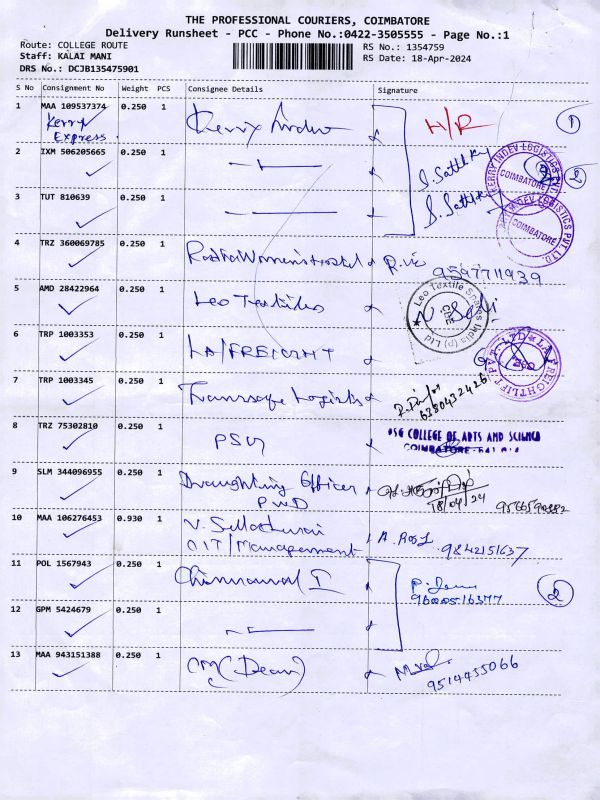 THE PROFESSIONAL COURIERS, COIMBATORE
Delivery Runsheet - PCC - Phone No.:0422-3505555 - Page No.:1
Route: COLLEGE ROUTE
RS No.: 1354759
Staff: KALAI MANI
RS Date: 18-Apr-2024
DRS No.: DCJB135475901
S No Consignment No Weight PCS Consignee Details Signature
1 MAA 109537374 0.250 1 Kerry Indev H/R 1
Kerry
Express
2 IXM 506205665 0.250 1 S. Sathky
KERRY INDEV LOGISTICS PVT. LTD.
COIMBATORE
3 TUT 810639 0.250 1 S. Sathky
KERRY INDEV LOGISTICS PVT. LTD.
COIMBATORE
4 TRZ 360069785 0.250 1 Women's Hostel
5 AMD 28422964 0.250 1 Leo Textiles
Leo Textile Spares India (P) Ltd
CBE
6 TRP 1003353 0.250 1 LA/FREIGHT
LA FREIGHTLIFT PVT. LTD
7 TRP 1003345 0.250 1 Transsafe Logistics
6380432426
8 TRZ 75302810 0.250 1 PSG
PSG COLLEGE OF ARTS AND SCIENCE
9 SLM 344096955 0.250 1 Draughting Officer
PWD
18/04/24
10 MAA 106276453 0.930 1 N. Sellathurai
CIT/Management
9842151637
11 POL 1567943 0.250 1 2
12 GPM 5424679 0.250 1
13 MAA 943151388 0.250 1 (Dean)
9514455066